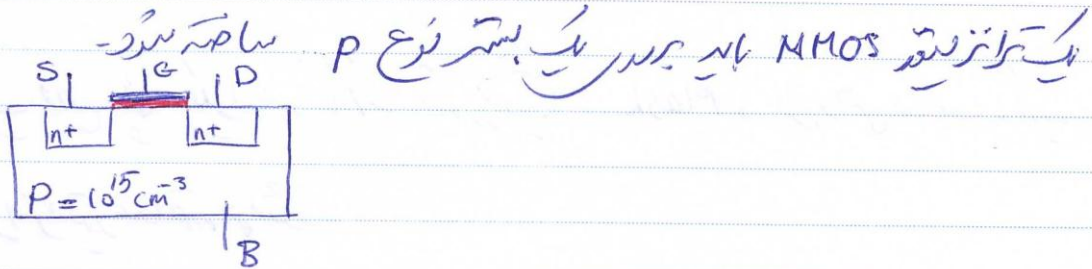 یک ترانزیستور NMOS باید بر روی یک بستر نوع P ساخته شود.
S G D
n+ n+
P = 10¹⁵ cm⁻³
B